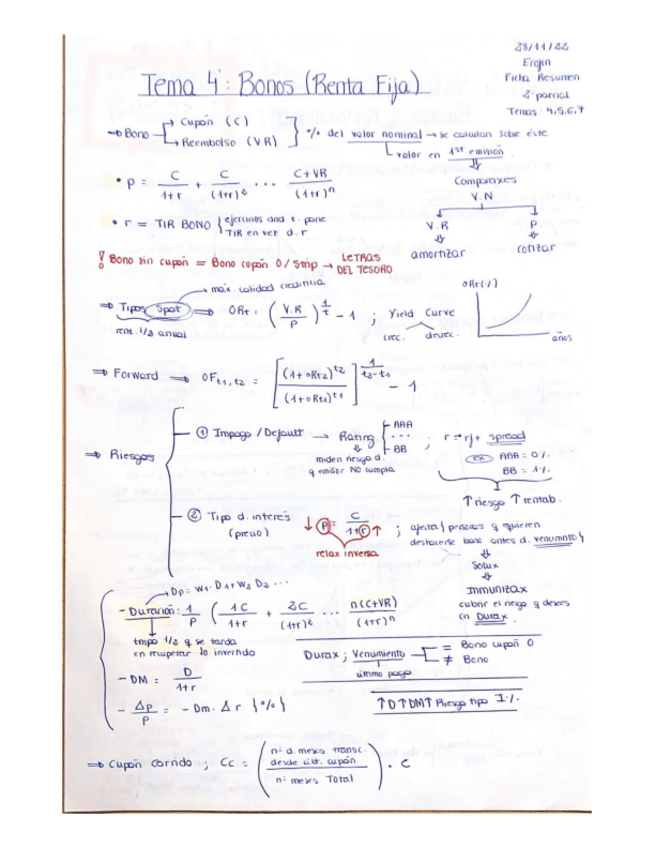 23/11/22
Ficha Resumen
2º parcial
Temas: 4,5,6,7
Tema 4: Bonos (Renta Fija)
⇒ Bono → Cupón (C)
→ Reembolso (VR)
% del valor nominal → se calculan sobre éste
valor en 1st emisión
V.N
V.R P
amortizar cotizar
• P = C/(1+r) + C/(1+r)² ... (C+VR)/(1+r)ⁿ
• r = TIR BONO
TIR en vez d. r
! Bono sin cupón = Bono cupón 0 / Strip → LETRAS DEL TESORO
max. calidad crediticia
⇒ Tipos Spot ⇒ 0Rt = (V.R/P)^(1/t) - 1 ; Yield Curve
crec. decrec.
0Rt (%)
años
rent. 1/2 anual
⇒ Forward ⇒ 0Ft1,t2 = [(1+0Rt2)^t2 / (1+0Rt1)^t1]^(1/(t2-t1)) - 1
⇒ Riesgos
① Impago / Default → Rating
AAA
...
BB
; r = rf + spread
ex AAA = 0%
BB = 1%
miden riesgo d.
q emisor NO cumpla
↑ riesgo ↑ rentab.
② Tipo d. interés (precio)
↓ P = C/(1+r) ↑
relax inversa
; afecta personas q quieren
deshacerse bono antes d. venimnto
Solux
Immunizax
cubrir el riesgo q desees
en Durax.
Dp = W1·D1 + W2 D2 ...
- Duración: 1/P (1C/(1+r) + 2C/(1+r)² ... n(C+VR)/(1+r)ⁿ)
tmpo 1/2 q se tarda
en recuperar lo invertido
Durax ; Venumiento
= Bono cupón 0
≠ Bono
último pago
- DM = D/(1+r)
- Δp/P = - Dm. Δr {%}
↑D ↑DM ↑ Riesgo tipo I%
⇒ Cupón corrido ; Cc = (nº d. meses transc. desde últ. cupón / nº meses Total) · C